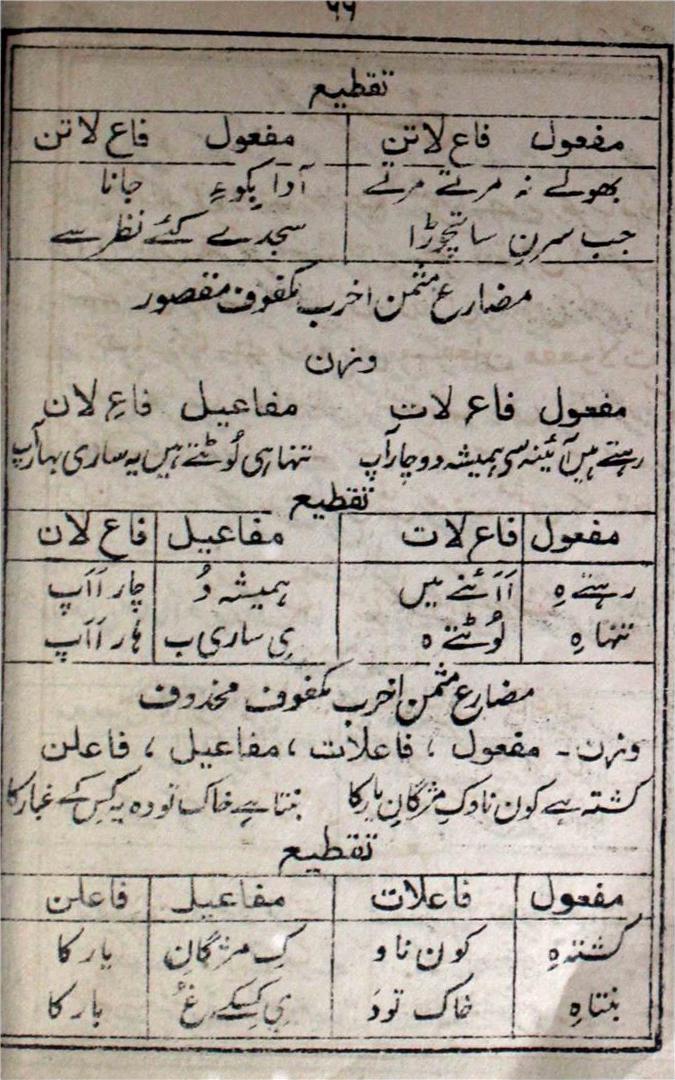 ۶۶
تقطیع
مفعول فاع لاتن مفعول فاع لاتن
بھولے نہ مرتے مرتے آدا بِکوءِ جانا
جب سرنِ ساتچوڑا سجدے کئے نظر سے
مضارع مثمن اخرب مکفوف مقصور
وزن
مفعول فاع لات مفاعیل فاع لان
رہتے ہیں آئینہ سی ہمیشہ دوچار آپ تنہا ہی لُوٹتے ہیں یہ ساری بہار آپ
تقطیع
مفعول فاع لات مفاعیل فاع لان
رہتے ہِ اَائنے یں ہمیشہ دُ چار اَاپ
تنہا ہِ لُوٹتے ہ یِ ساری ب ہار اَاپ
مضارع مثمن اخرب مکفوف محذوف
وزن۔ مفعول، فاعلات، مفاعیل، فاعلن
کشتہ ہے کون ناوکِ مژگانِ یار کا بنتا ہے خاک تودہ یہ کس کے غبار کا
تقطیع
مفعول فاعلات مفاعیل فاعلن
کشتہ ہِ کون ناو کِ مژگانِ یار کا
بنتا ہِ خاک تودَ یِ کسکے غُ بار کا